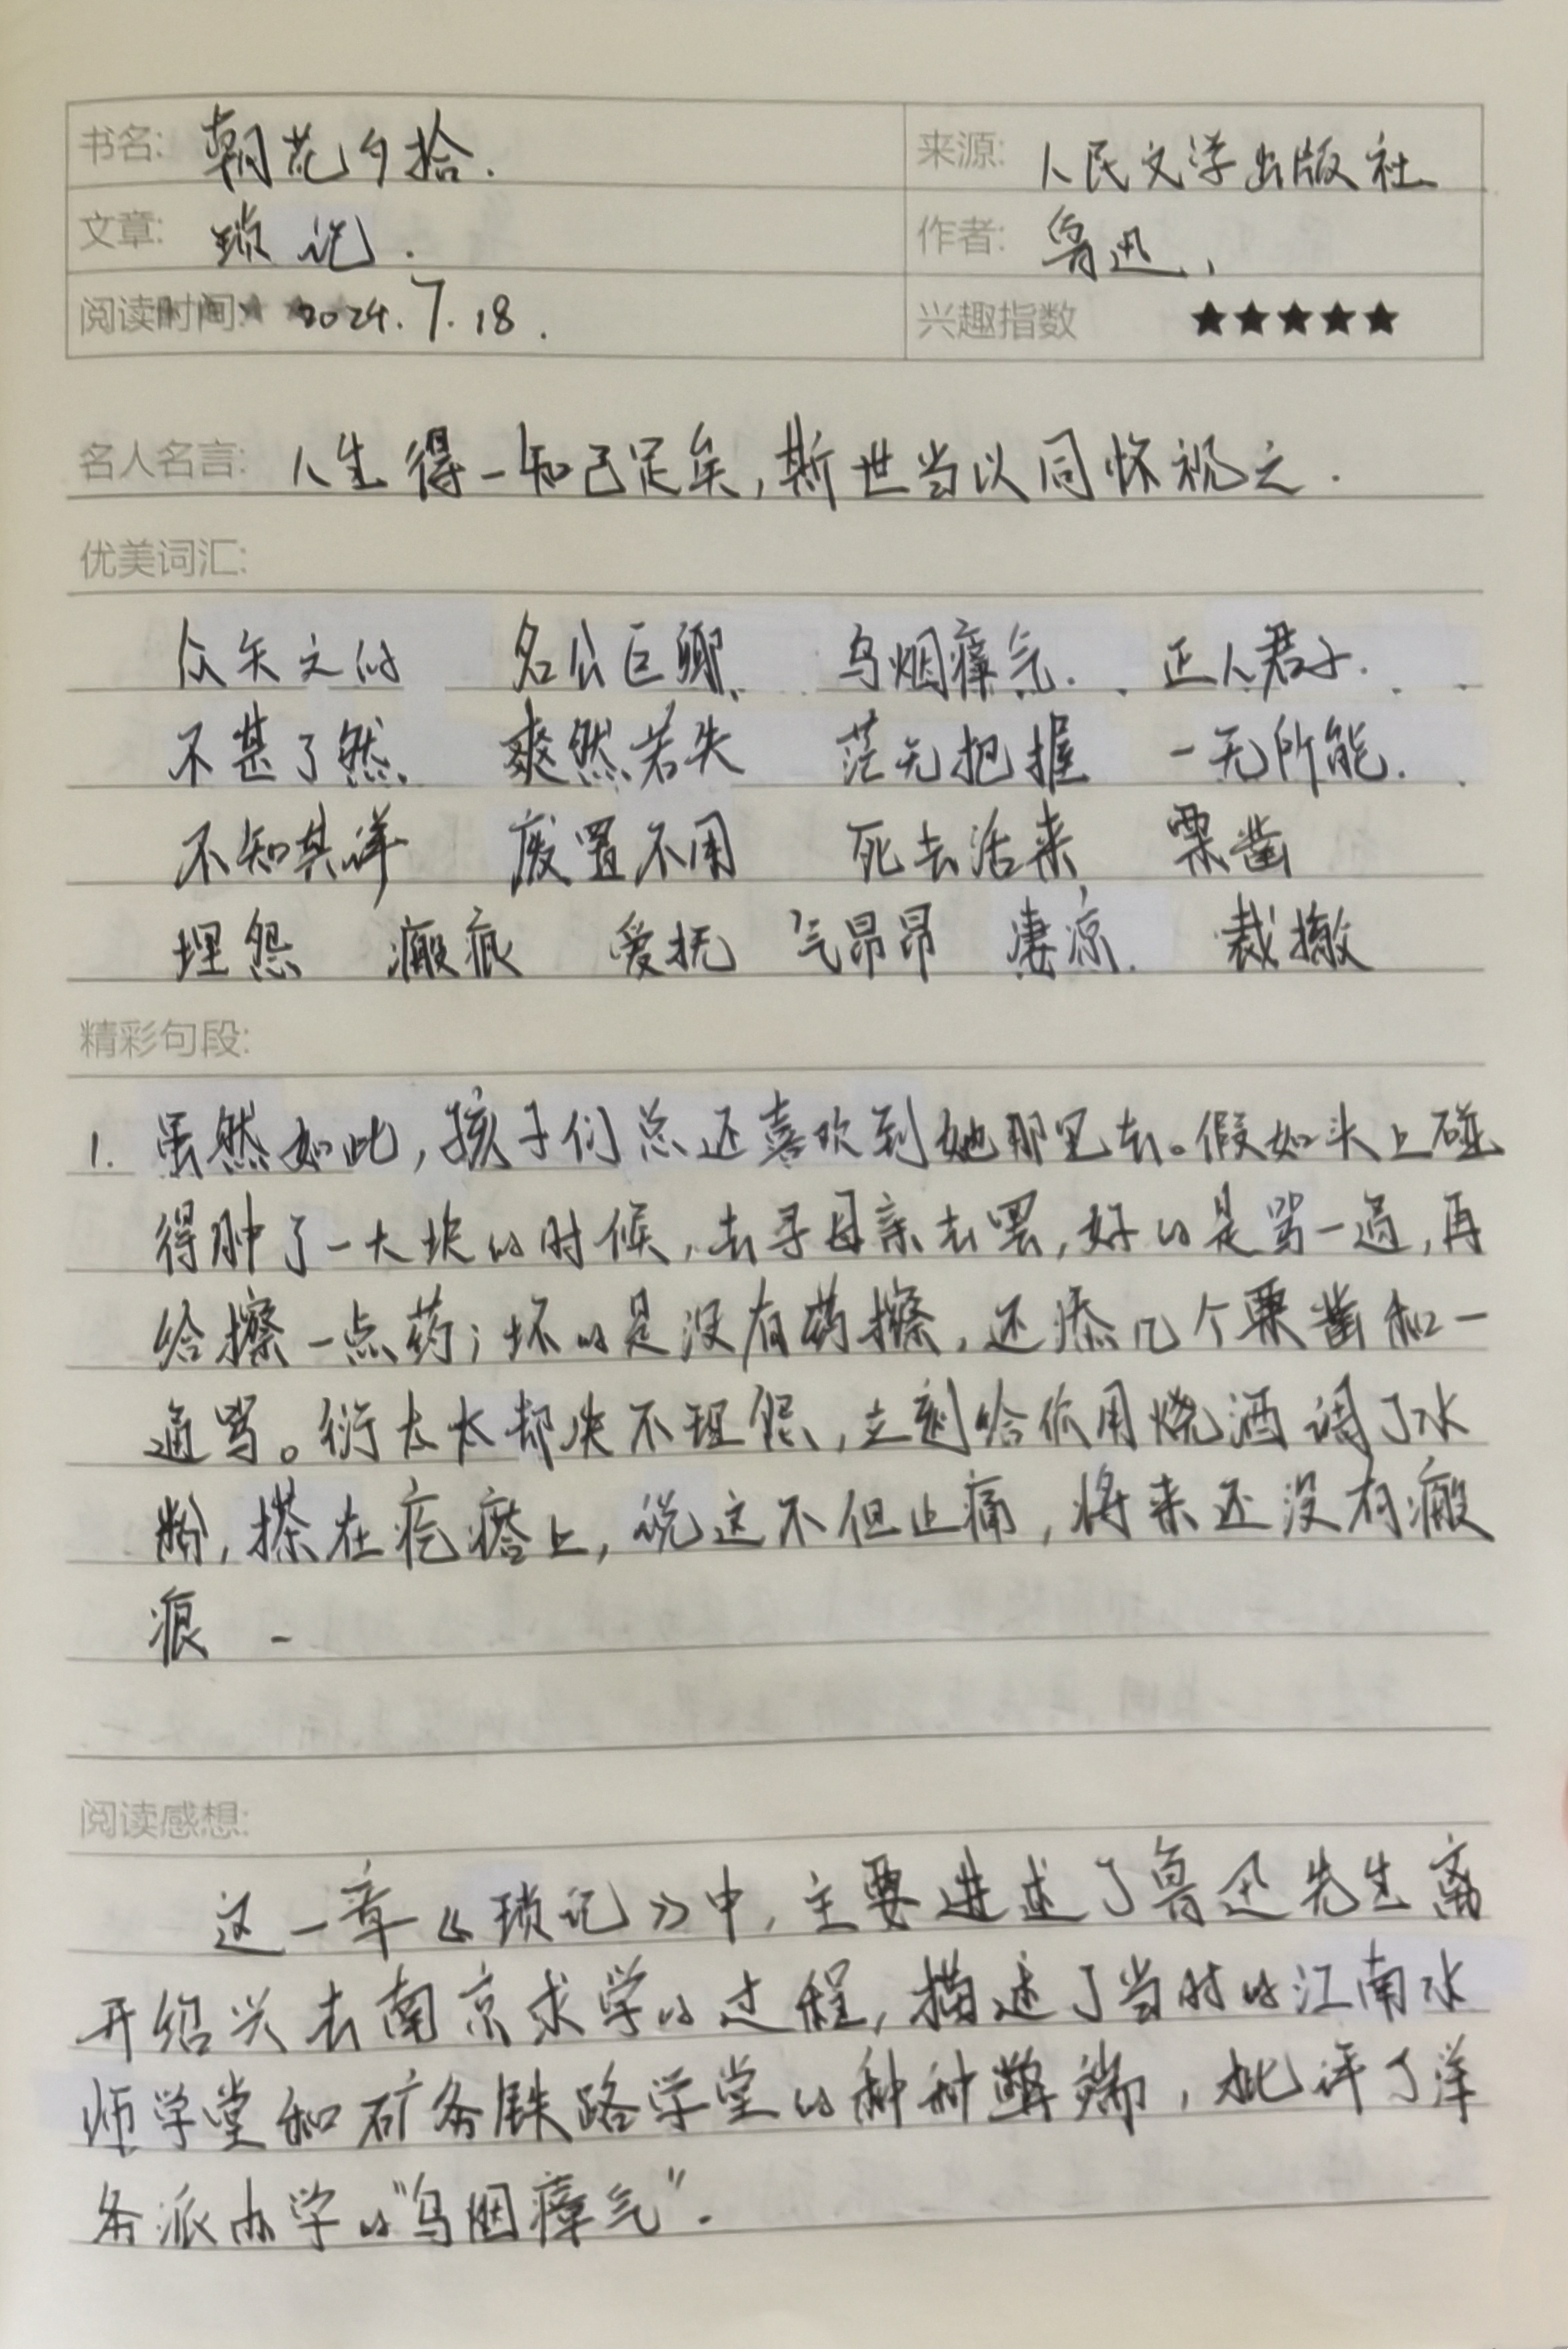 书名: 朝花夕拾. 来源: 人民文学出版社
文章: 琐记. 作者: 鲁迅,
阅读时间: 2024.7.18. 兴趣指数 ★★★★★
名人名言: 人生得一知己足矣,斯世当以同怀视之.
优美词汇:
众矢之的 名公巨卿 乌烟瘴气. 正人君子.
不甚了然 爽然若失 茫无把握 一无所能.
不知其详 废置不用 死去活来 栗凿
埋怨 瘢痕 爱抚 气昂昂 凄凉 裁撤
精彩句段:
1. 虽然如此,孩子们总还喜欢到她那里去。假如头上碰
得肿了一大块的时候,去寻母亲去罢,好的是骂一通,再
给擦一点药;坏的是没有药擦,还添几个栗凿和一
通骂。衍太太却决不埋怨,立刻给你用烧酒调了水
粉,搽在疙瘩上,说这不但止痛,将来还没有瘢
痕
阅读感想:
这一章《琐记》中,主要讲述了鲁迅先生离
开绍兴去南京求学的过程,描述了当时的江南水
师学堂和矿务铁路学堂的种种弊端,批评了洋
务派办学的“乌烟瘴气”.